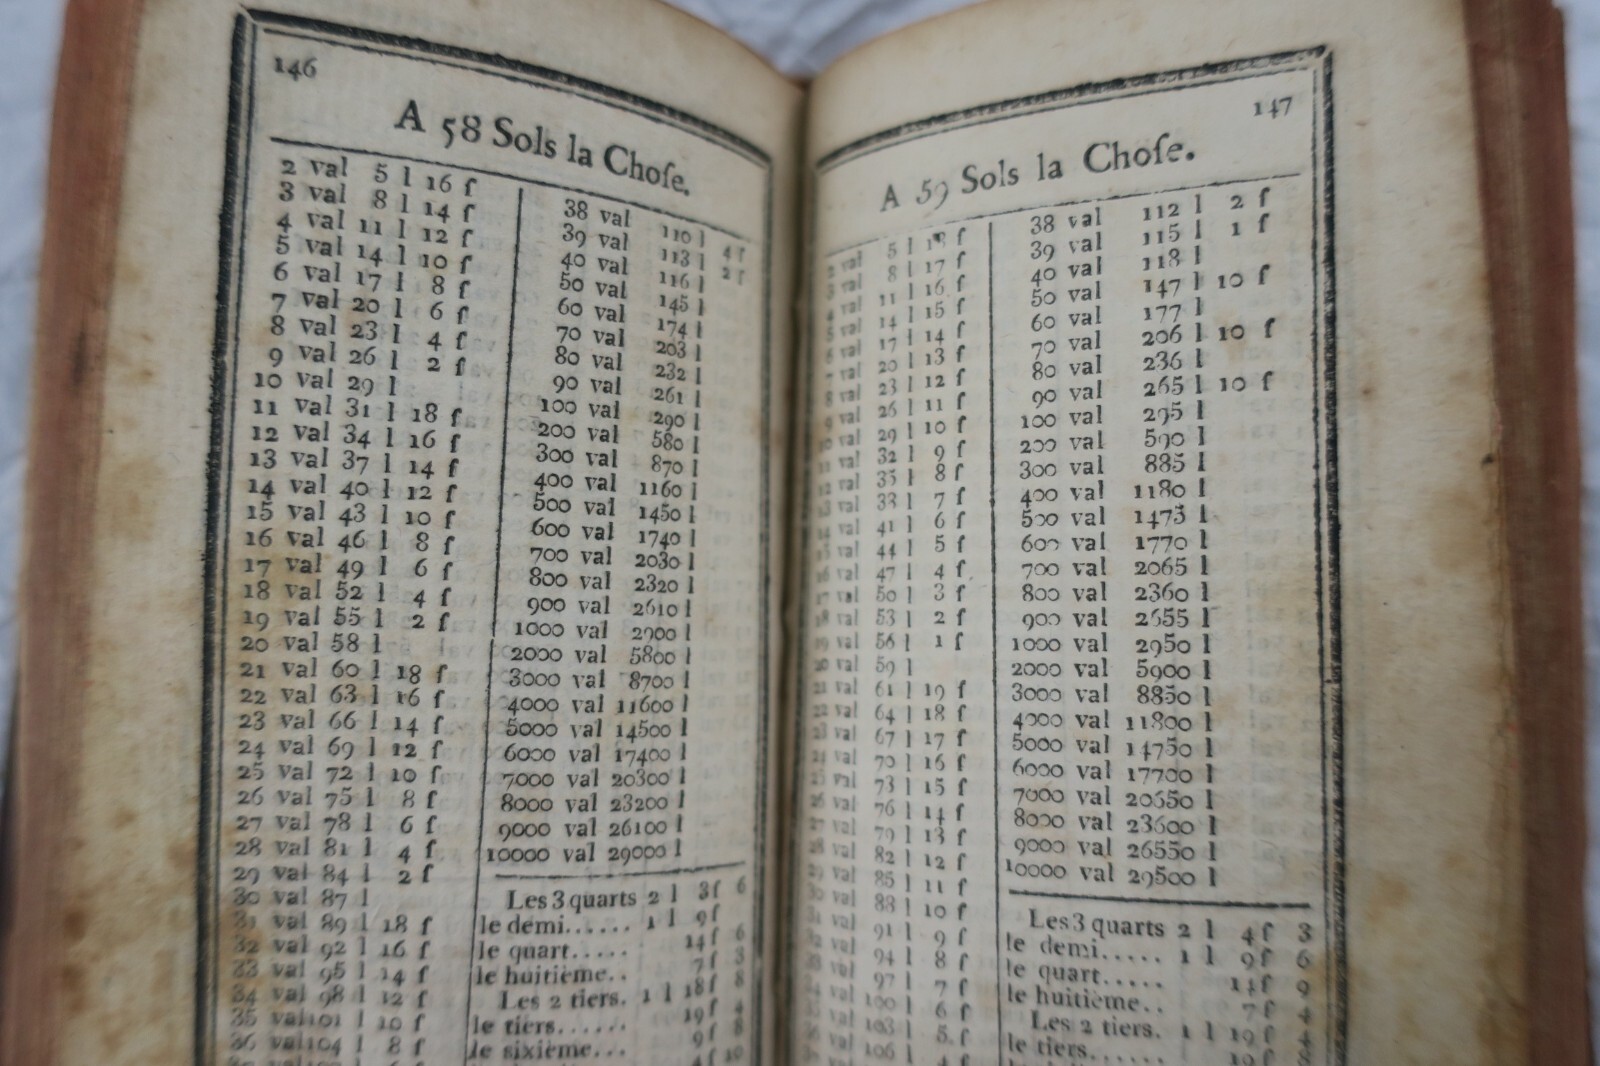 146
A 58 Sols la Choſe.
2 val 5 l 16 ſ
3 val 8 l 14 ſ
4 val 11 l 12 ſ
5 val 14 l 10 ſ
6 val 17 l 8 ſ
7 val 20 l 6 ſ
8 val 23 l 4 ſ
9 val 26 l 2 ſ
10 val 29 l
11 val 31 l 18 ſ
12 val 34 l 16 ſ
13 val 37 l 14 ſ
14 val 40 l 12 ſ
15 val 43 l 10 ſ
16 val 46 l 8 ſ
17 val 49 l 6 ſ
18 val 52 l 4 ſ
19 val 55 l 2 ſ
20 val 58 l
21 val 60 l 18 ſ
22 val 63 l 16 ſ
23 val 66 l 14 ſ
24 val 69 l 12 ſ
25 val 72 l 10 ſ
26 val 75 l 8 ſ
27 val 78 l 6 ſ
28 val 81 l 4 ſ
29 val 84 l 2 ſ
30 val 87 l
31 val 89 l 18 ſ
32 val 92 l 16 ſ
33 val 95 l 14 ſ
34 val 98 l 12 ſ
35 val 101 l 10 ſ
36 val 104 l 8 ſ
38 val 110 l 4 ſ
39 val 113 l 2 ſ
40 val 116 l
50 val 145 l
60 val 174 l
70 val 203 l
80 val 232 l
90 val 261 l
100 val 290 l
200 val 580 l
300 val 870 l
400 val 1160 l
500 val 1450 l
600 val 1740 l
700 val 2030 l
800 val 2320 l
900 val 2610 l
1000 val 2900 l
2000 val 5800 l
3000 val 8700 l
4000 val 11600 l
5000 val 14500 l
6000 val 17400 l
7000 val 20300 l
8000 val 23200 l
9000 val 26100 l
10000 val 29000 l
Les 3 quarts 2 l 3 ſ 6
le demi...... 1 l 9 ſ
le quart..... 14 ſ 6
le huitième.. 7 ſ 3
Les 2 tiers. 1 l 18 ſ 8
le tiers...... 19 ſ 4
le sixième... 9 ſ 8
147
A 59 Sols la Choſe.
2 val 5 l 18 ſ
3 val 8 l 17 ſ
4 val 11 l 16 ſ
5 val 14 l 15 ſ
6 val 17 l 14 ſ
7 val 20 l 13 ſ
8 val 23 l 12 ſ
9 val 26 l 11 ſ
10 val 29 l 10 ſ
11 val 32 l 9 ſ
12 val 35 l 8 ſ
13 val 38 l 7 ſ
14 val 41 l 6 ſ
15 val 44 l 5 ſ
16 val 47 l 4 ſ
17 val 50 l 3 ſ
18 val 53 l 2 ſ
19 val 56 l 1 ſ
20 val 59 l
21 val 61 l 19 ſ
22 val 64 l 18 ſ
23 val 67 l 17 ſ
24 val 70 l 16 ſ
25 val 73 l 15 ſ
26 val 76 l 14 ſ
27 val 79 l 13 ſ
28 val 82 l 12 ſ
29 val 85 l 11 ſ
30 val 88 l 10 ſ
31 val 91 l 9 ſ
32 val 94 l 8 ſ
33 val 97 l 7 ſ
34 val 100 l 6 ſ
35 val 103 l 5 ſ
36 val 106 l 4 ſ
38 val 112 l 2 ſ
39 val 115 l 1 ſ
40 val 118 l
50 val 147 l 10 ſ
60 val 177 l
70 val 206 l 10 ſ
80 val 236 l
90 val 265 l 10 ſ
100 val 295 l
200 val 590 l
300 val 885 l
400 val 1180 l
500 val 1475 l
600 val 1770 l
700 val 2065 l
800 val 2360 l
900 val 2655 l
1000 val 2950 l
2000 val 5900 l
3000 val 8850 l
4000 val 11800 l
5000 val 14750 l
6000 val 17700 l
7000 val 20650 l
8000 val 23600 l
9000 val 26550 l
10000 val 29500 l
Les 3 quarts 2 l 4 ſ 3
le demi..... 1 l 9 ſ 6
le quart..... 14 ſ 9
le huitième.. 7 ſ 4
Les 2 tiers. 1 l 19 ſ 4
le tiers......